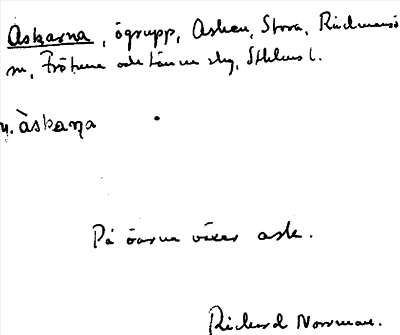 Askarna, ögrupp, Asken, Stora, Rådmansö
sn, Frötuna och Länna skg, Sthlms l.
u. àskaṇa
På öarna växer ask.
Rickard Norrman.